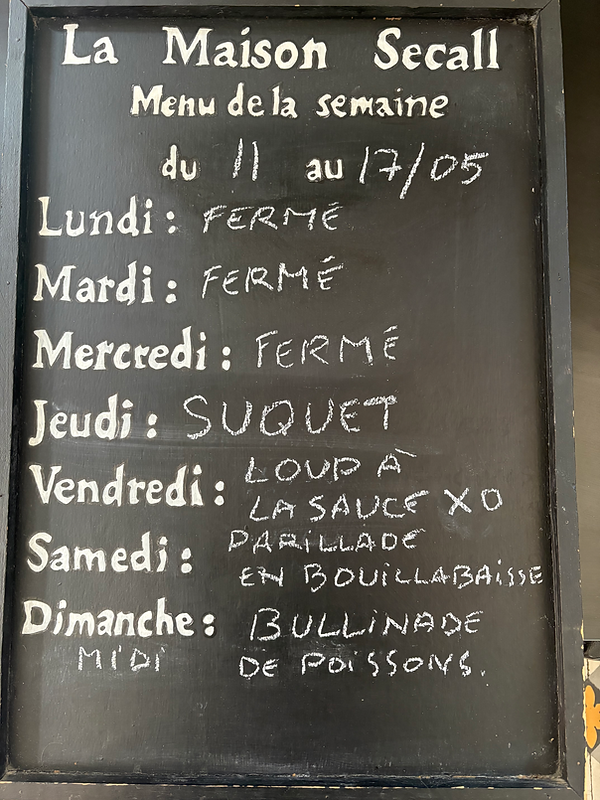 La Maison Secall
Menu de la semaine
du 11 au 17/05
Lundi : FERMÉ
Mardi : FERMÉ
Mercredi : FERMÉ
Jeudi : SUQUET
Vendredi : LOUP À
LA SAUCE XO
Samedi : PARILLADE
EN BOUILLABAISSE
Dimanche : BULLINADE
MIDI DE POISSONS.